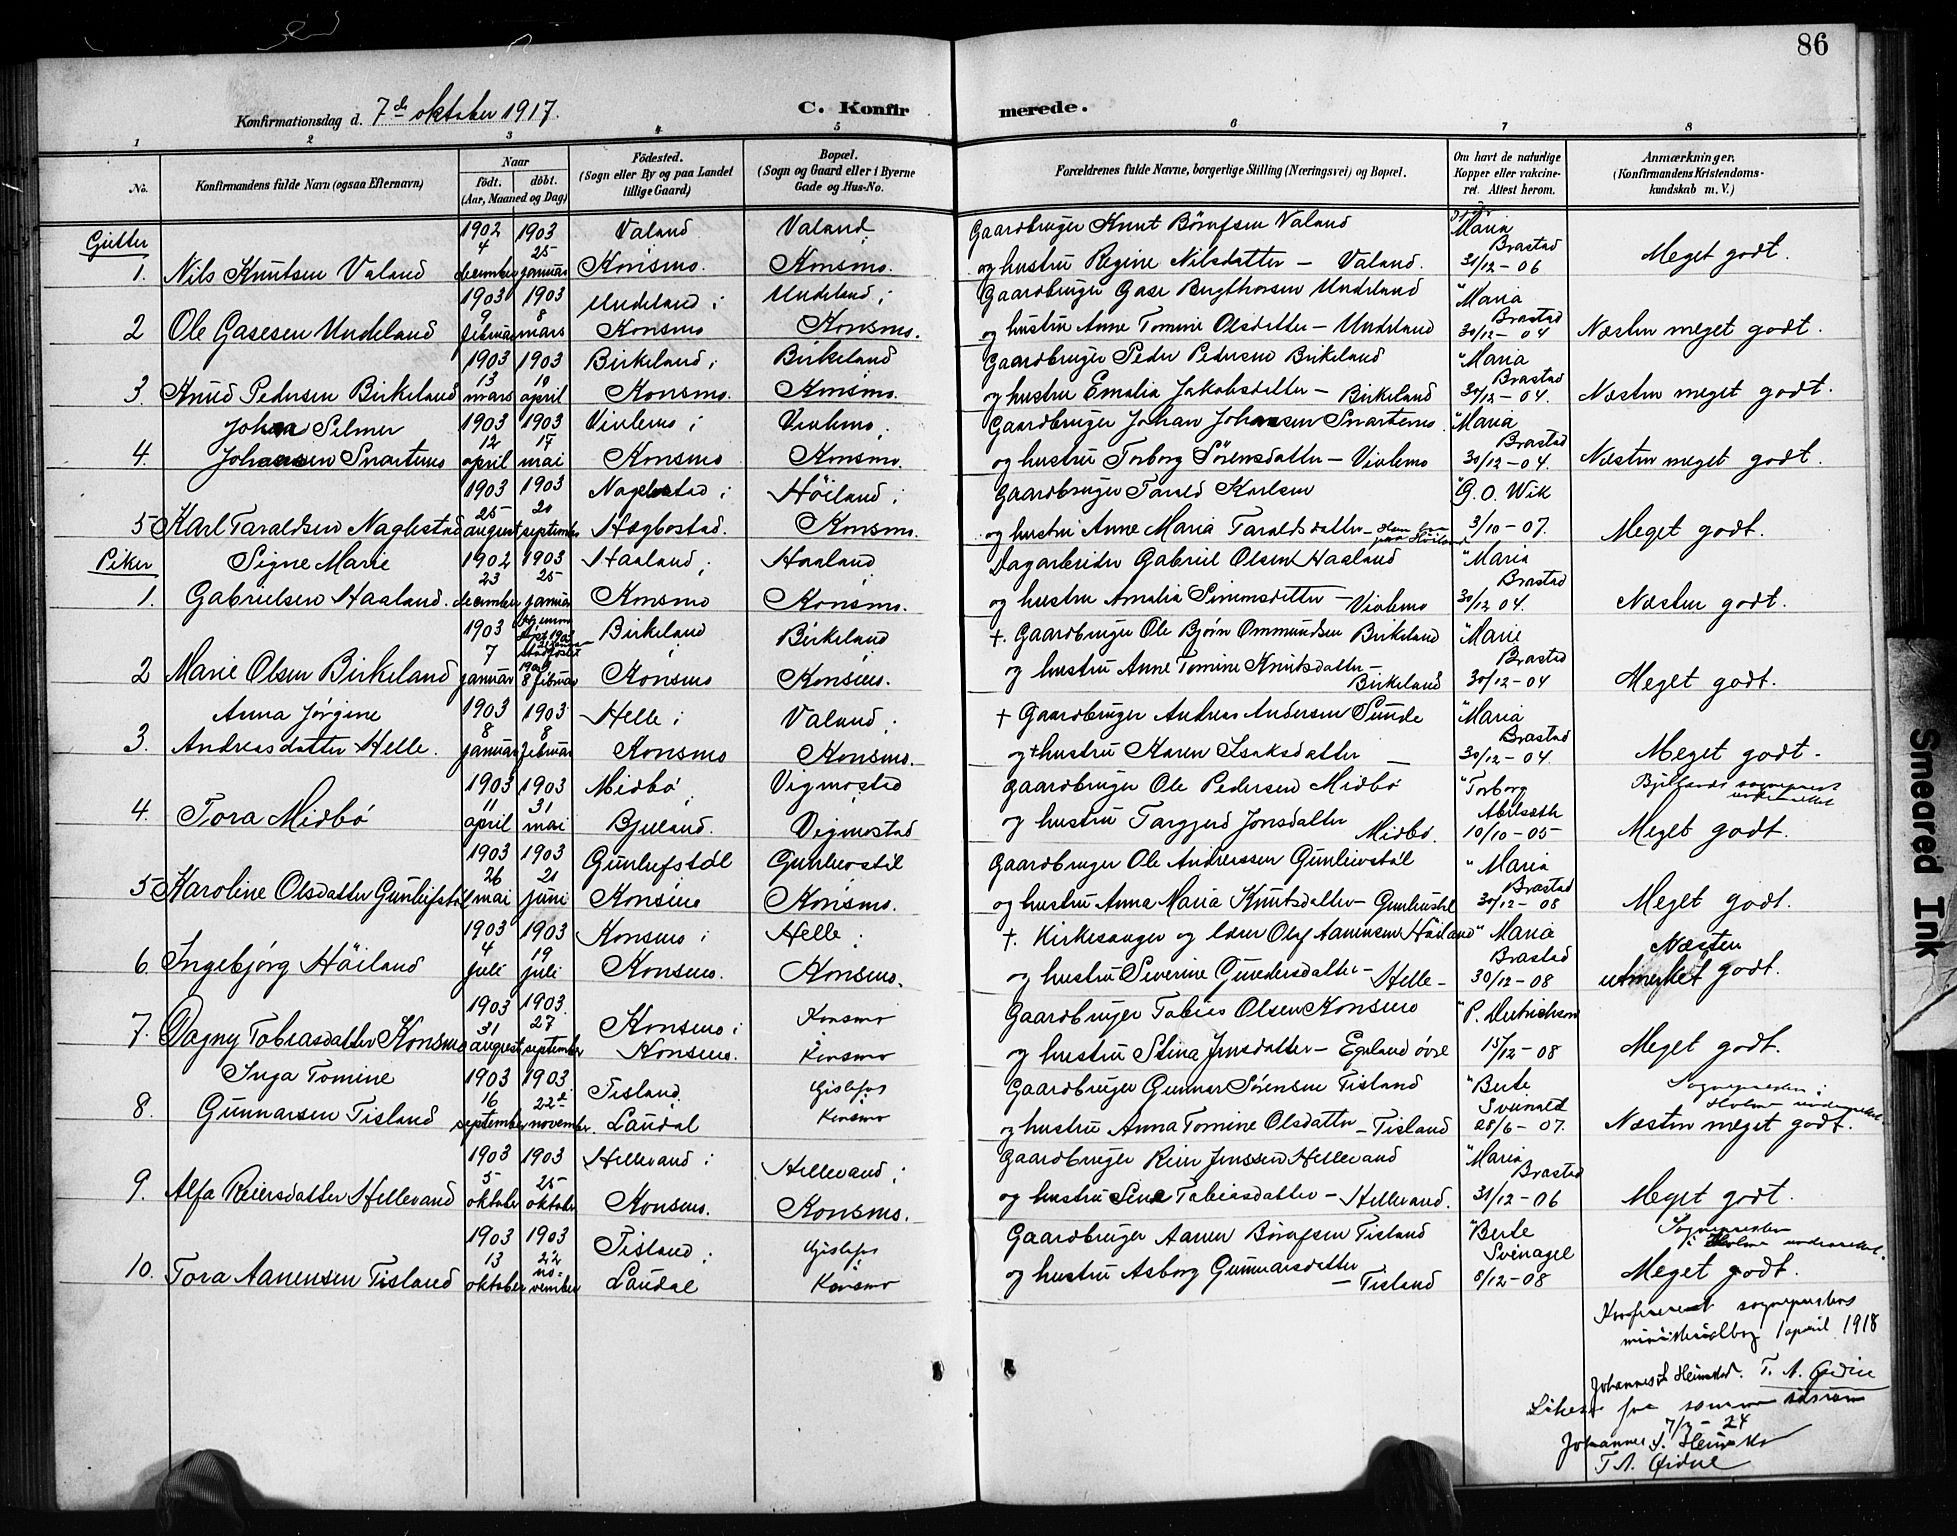 86
Konfirmationsdag d. 7de oktober 1917.
C. Konfirmerede.
1 2 3 4 5 6 7 8
No.
Konfirmandens fulde Navn (ogsaa Efternavn)
Naar
födt. döbt.
(Aar, Maaned og Dag)
Födested.
(Sogn eller By og paa Landet
tillige Gaard)
Bopæl.
(Sogn og Gaard eller i Byerne
Gade og Hus-No.
Forældrenes fulde Navne, borgerlige Stilling (Næringsvei) og Bopæl.
Om havt de naturlige
Kopper eller vakcine-
ret. Attest herom.
Anmærkninger.
(Konfirmandens Kristendoms-
kundskab m. V.)
Gutter
1902 1903 Valand Valand Gaardbruger Knut Börufsen Valand Maria
1. Nils Knutsen Valand 4 december 25 januar Konsmo. Konsmo. og hustru Regine Nilsdatter – Valand. Brastad 31/12-06 Meget godt.
1903 1903 Undeland i Undeland i Gaardbruger Gase Bergthorsen Undeland "Maria
2 Ole Gasesen Undeland 9 februar 8 mars Konsmo Konsmo. og hustru Anne Tomine Olsdatter – Undeland Brastad 30/12-04 Næsten meget godt.
1903 1903 Birkeland i Birkeland Gaardbruger Peder Pedersen Birkeland "Maria
3. Knud Pedersen Birkeland 13 mars 19 april Konsmo. Konsmo. og hustru Emalia Jakobsdatter – Birkeland Brastad 30/12-04. Næsten meget godt.
Johan Selmer 1903 1903 Vivlemo i Vivlemo Gaardbruger Johan Johansen Snartemo. "Maria
4. Johansen Snartemo 12 april 17 mai Konsmo Konsmo. og hustru Torborg Sörensdatter – Vivlemo Brastad 30/12-04. Næsten meget godt.
1903 1903 Naglestad i Höiland i Gaardbruger Tarald Karlsen "G. O. Wik
5 Karl Taraldsen Naglestad 25 august 20 september Hægbostad. Konsmo. og hustru Anne Maria Taraldsdatter – paa Höiland 3/10-07. Meget godt.
Piker
Signe Marie 1902 1903 Haaland i Haaland Dagarbeider Gabriel Olsen Haaland "Maria
1. Gabrielsen Haaland. 23 december 25 januar Konsmo Konsmo. og hustru Amalia Simonsdatter – Vivlemo Brastad 30/12 04. Næsten godt.
1903 Birkeland Birkeland + Gaardbruger Ole Bjørn Ommundsen Birkeland "Marie
2 Marie Olsen Birkeland 7 januar 8 februar Konsmo Konsmo. og hustru Anne Tomine Knutsdatter – Birkeland Brastad 30/12-04 Meget godt.
Anna Jørgine 1903 1903 Helle i Valand i + Gaardbruger Andreas Andersen Sunde "Maria
3. Andreasdatter Helle. 8 januar 8 februar Konsmo Konsmo. og + hustru Karen Isaksdatter – Brastad 30/12-04. Meget godt.
1903 1903 Midbø Vigmostad Gaardbruger Ole Pedersen Midbø "Torborg Bjellands sogneprest
4. Tora Midbø 11 april 31 mai Bjelland. Vigmostad og hustru Targjerd Jonsdatter Midbø. 10/10-05 Meget godt.
1903 1903 Gunlufstöl Gunleivstöl Gaardbruger Ole Andreassen Gunleivstöl "Maria
5 Karoline Olsdatter Gunleifstöl 26 mai 21 juni Konsmo Konsmo. og hustru Anna Maria Knutsdatter – Gunleivstöl Brastad 30/12-08 Meget godt.
1903 1903 Konsmo i Helle i +. Kirkesanger og lærer Olaf Aanensen Höiland "Maria Næsten
6. Ingebjörg Höiland 4 juli 19 juli Konsmo. Konsmo. og hustru Severine Gundersdatter – Helle – Brastad 30/12-08 utmerket godt.
1903 1903. Konsmo i Konsmo Gaardbruger Tobias Olsen Konsmo "P. Didrichson
7. Dagny Tobiasdatter Konsmo 31 august 27 september Konsmo. Konsmo og hustru Stina Jensdatter – Egeland övre 15/12-08 Meget godt.
Inga Tomine 1903 1903. Tisland. Gislefos Gaardbruger Gunnar Sörensen Tisland "Berte
8. Gunnarsen Tisland 16 september 22de november. Laudal Konsmo og hustru Anna Tomine Olsdatter – Tisland 28/6-07. Næsten meget godt.
1903 1903 Hellevand i Hellevand i Gaardbruger Reier Jenssen Hellevand "Maria
9. Alfa Reiersdatter Hellevand 5 oktober 25 oktober Konsmo. Konsmo. og hustru Sina Tobiasdatter – Hellevand. Brastad 31/12-06 Meget godt.
1903 1903 Tisland i Gislefos Gaardbruger Aanen Börufsen Tisland "Berte
10. Tora Aanensen Tisland 13 oktober 22 november Laudal Konsmo og hustru Asborg Gunnarsdatter – Tisland 8/12-08 Meget godt.
Konfereret sogneprestens
ministerialbog 1 april 1918
T. A. Øidne
7/3-24
T A. Øidne
Smeared Ink